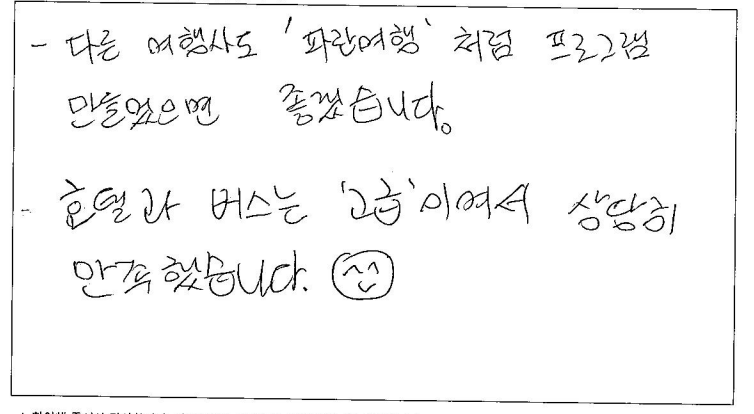 - 다른 여행사도 '파란여행' 처럼 프로그램
만들었으면 좋겠습니다.
- 호텔과 버스는 '고급'이여서 상당히
만족했습니다. ^^